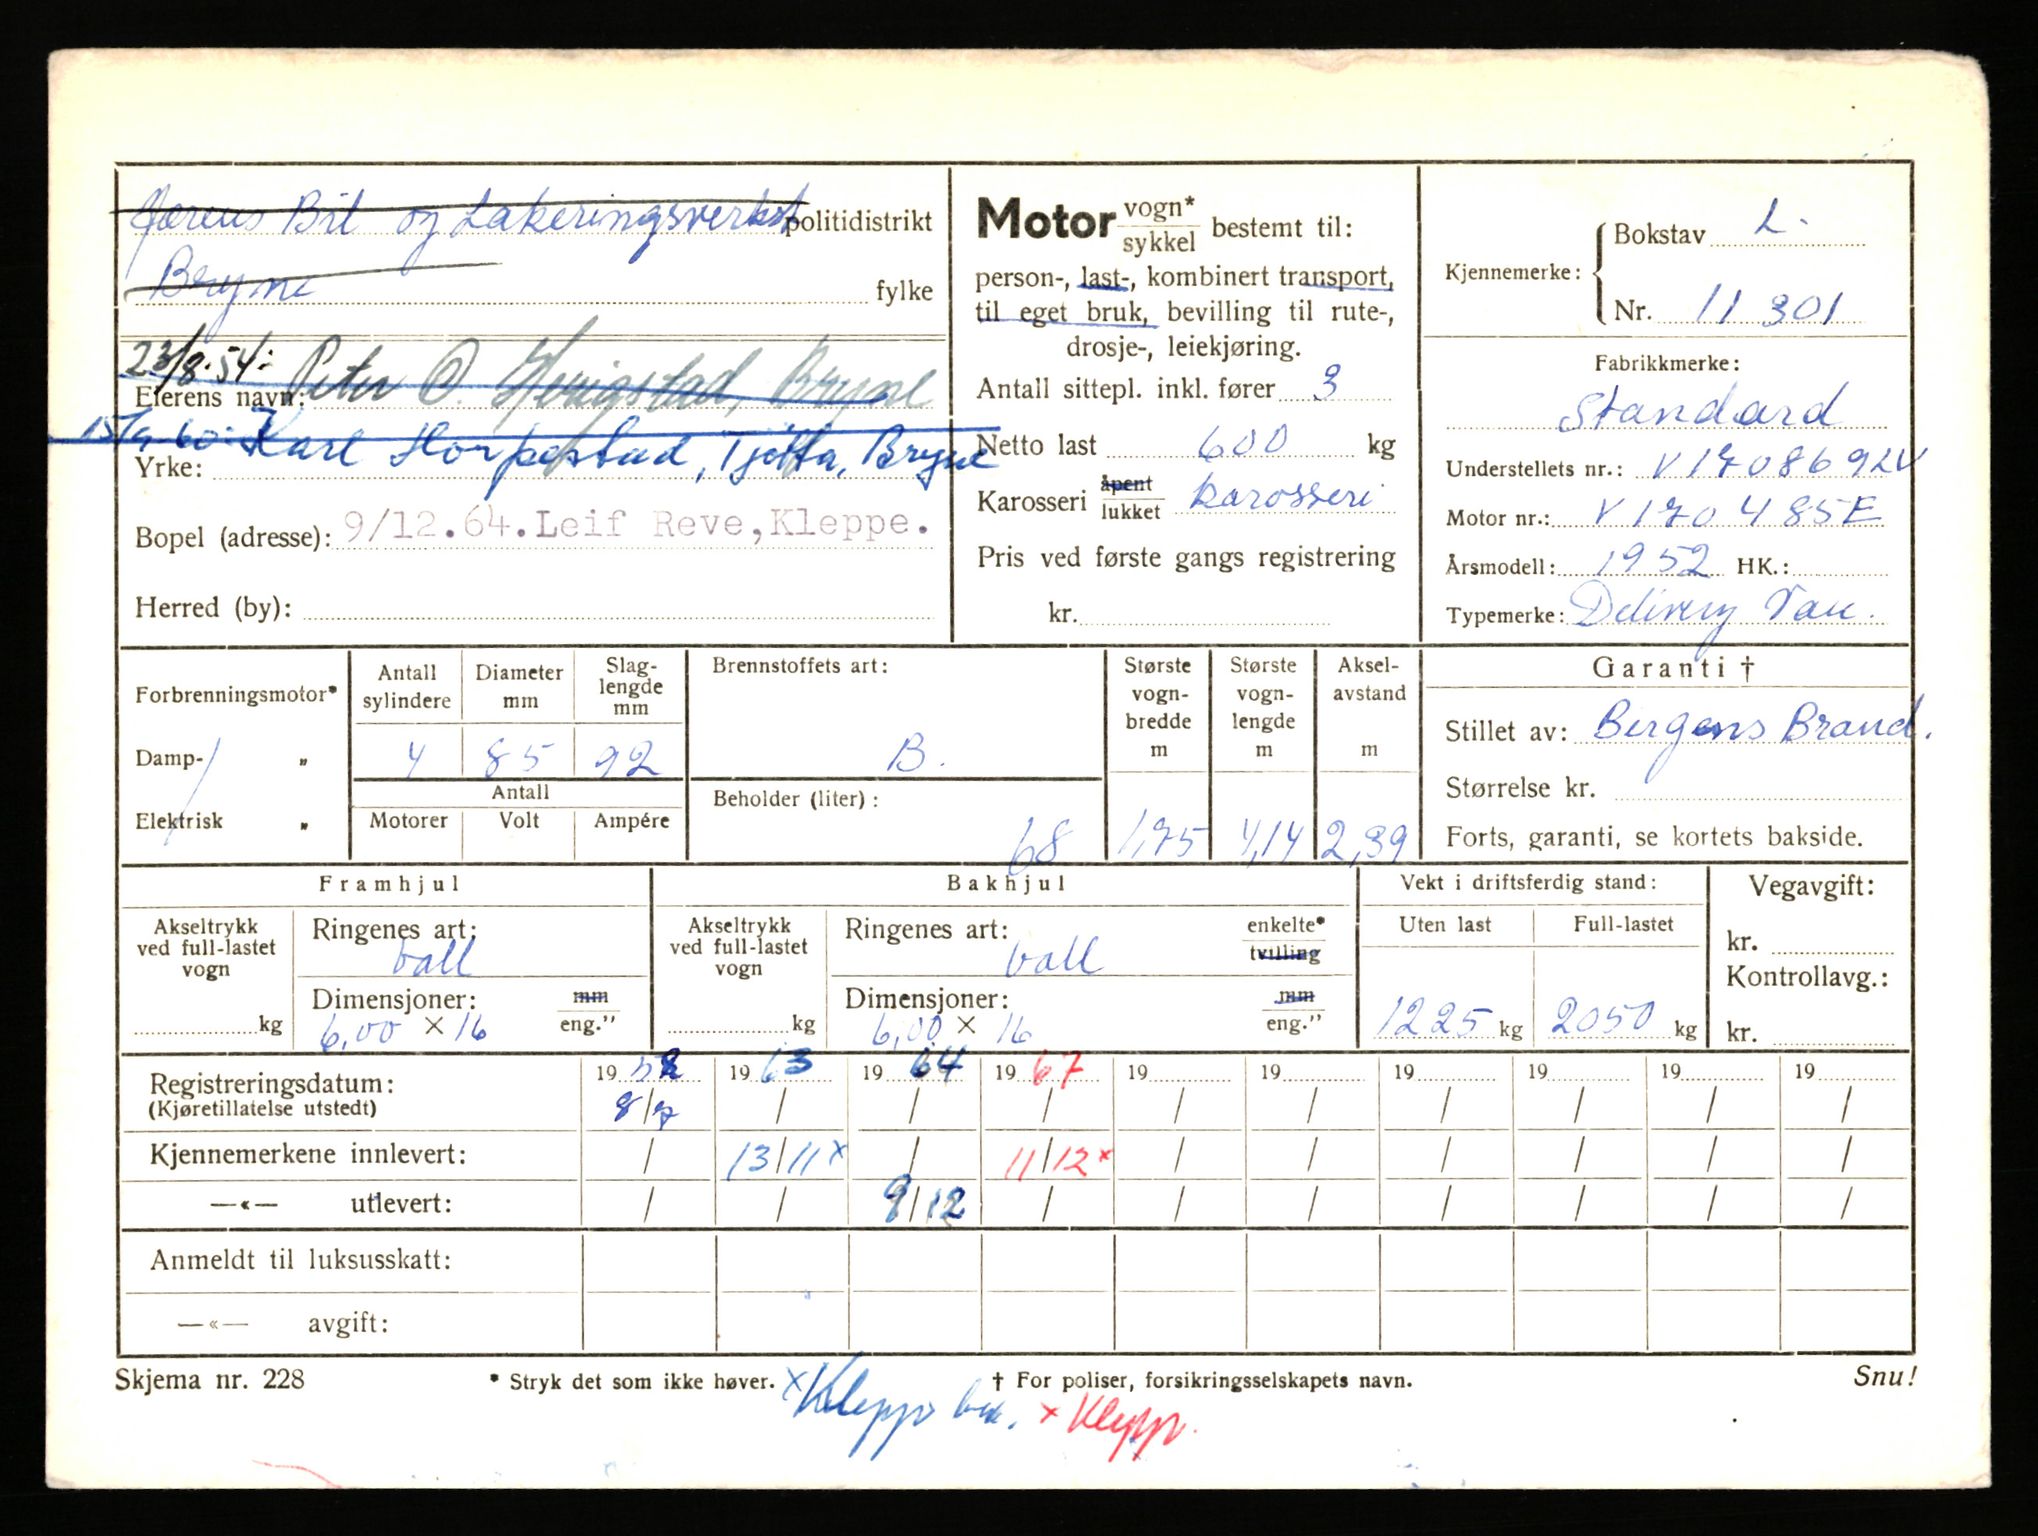 Jærens Bil og Lakeringsverkst politidistrikt
Bryne fylke
23/8.54: Peter O. Herigstad, Bryne
Eierens navn:
15/9 60: Karl Horpestad, Tjøtta, Bryne
Yrke:
Bopel (adresse): 9/12.64.Leif Reve,Kleppe.
Herred (by):
Motor vogn* sykkel bestemt til:
person-, last-, kombinert transport,
til eget bruk, bevilling til rute-,
drosje-, leiekjøring.
Antall sittepl. inkl. fører 3
Netto last 600 kg
Karosseri åpent lukket karosseri
Pris ved første gangs registrering
kr.
Kjennemerke: Bokstav L.
Nr. 11301
Fabrikkmerke:
Standard
Understellets nr.: V170869LV
Motor nr.: V170485E
Årsmodell: 1952 HK.:
Typemerke: Delivery Van.
Forbrenningsmotor*
Damp- „
Elektrisk „
Antall sylindere Diameter mm Slag-lengde mm
4 85 92
Antall
Motorer Volt Ampére
Brennstoffets art:
B.
Beholder (liter):
68
Største vogn-bredde m 1,75
Største vogn-lengde m 4,14
Aksel-avstand m 2,39
Garanti †
Stillet av: Bergens Brand.
Størrelse kr.
Forts, garanti, se kortets bakside.
Framhjul
Akseltrykk ved full-lastet vogn
kg
Ringenes art: ball
Dimensjoner: mm
6,00 × 16 eng."
Bakhjul
Akseltrykk ved full-lastet vogn
kg
Ringenes art: ball enkelte* tvilling
Dimensjoner: mm
6,00 × 16 eng."
Vekt i driftsferdig stand:
Uten last Full-lastet
1225 kg 2050 kg
Vegavgift:
kr.
Kontrollavg.:
kr.
Registreringsdatum: 19 52 19 63 19 64 19 67 19 19 19 19 19 19
(Kjøretillatelse utstedt) 8/7 / / / / / / / / /
Kjennemerkene innlevert: / 13/11 x / 11/12 x / / / / / /
—«— utlevert: / / 9/12 / / / / / / /
Anmeldt til luksusskatt:
—«— avgift:
Skjema nr. 228 * Stryk det som ikke høver. † For poliser, forsikringsselskapets navn. Snu!
x Klepp x Klepp.